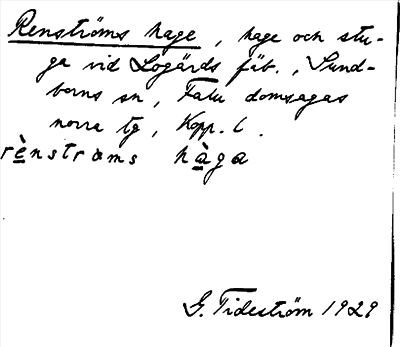 Renströms hage, hage och stu-
ga vid Logärds fäb., Sund-
borns sn, Falu domsagas
norra tg, Kopp. l.
rènstrams hàga
G. Tideström 1929